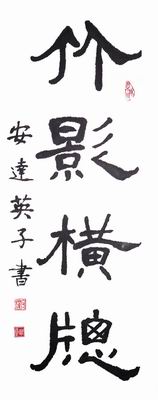 竹影横牕
安達英子書